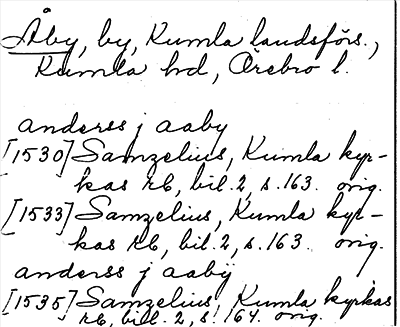 Åby, by, Kumla landsförs.,
Kumla hd, Örebro l.
anderss j aaby
[1530] Samzelius, Kumla kyr-
kas rb, bil. 2, s. 163. orig.
[1533] Samzelius, Kumla kyr-
kas rb, bil. 2, s. 163. orig.
anderss j aabÿ
[1535] Samzelius, Kumla kyrkas
rb, bil. 2, s. 164. orig.